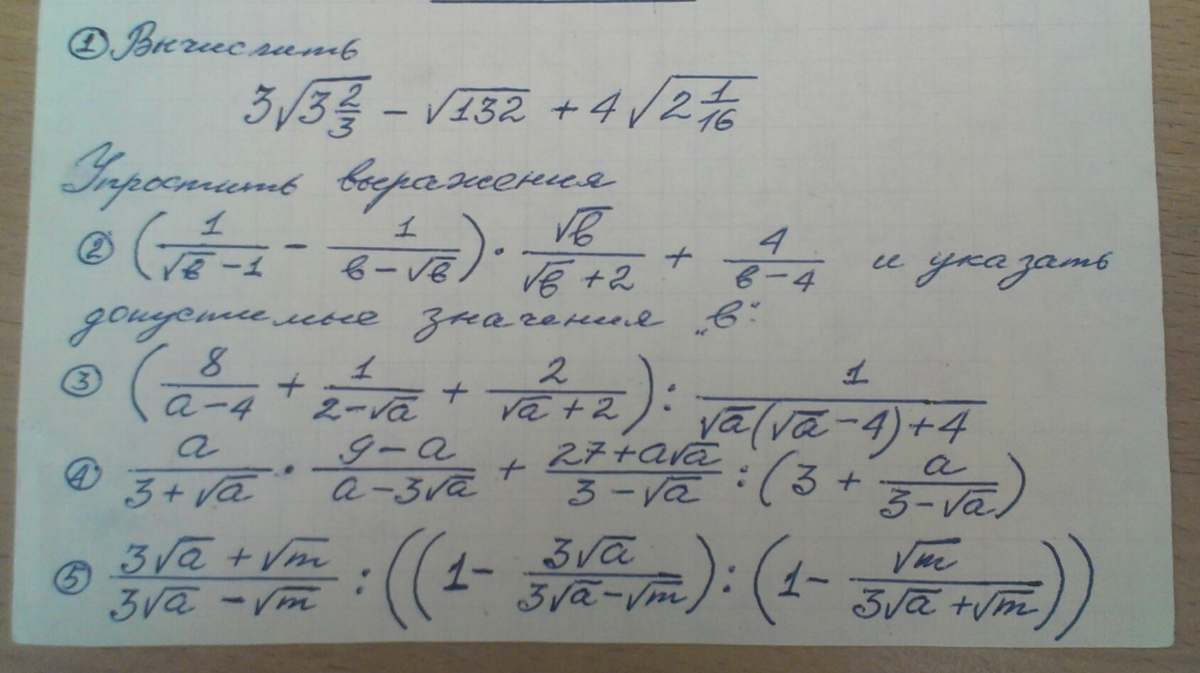 ① Вычислить
3√(3 2/3) - √132 + 4√(2 1/16)
Упростить выражения
② (1/(√в - 1) - 1/(в - √в)) · √в/(√в + 2) + 4/(в - 4) и указать
допустимые значения „в“:
③ (8/(a - 4) + 1/(2 - √a) + 2/(√a + 2)) : 1/(√a(√a - 4) + 4)
④ a/(3 + √a) · (9 - a)/(a - 3√a) + (27 + a√a)/(3 - √a) : (3 + a/(3 - √a))
⑤ (3√a + √m)/(3√a - √m) : ((1 - 3√a/(3√a - √m)) : (1 - √m/(3√a + √m)))